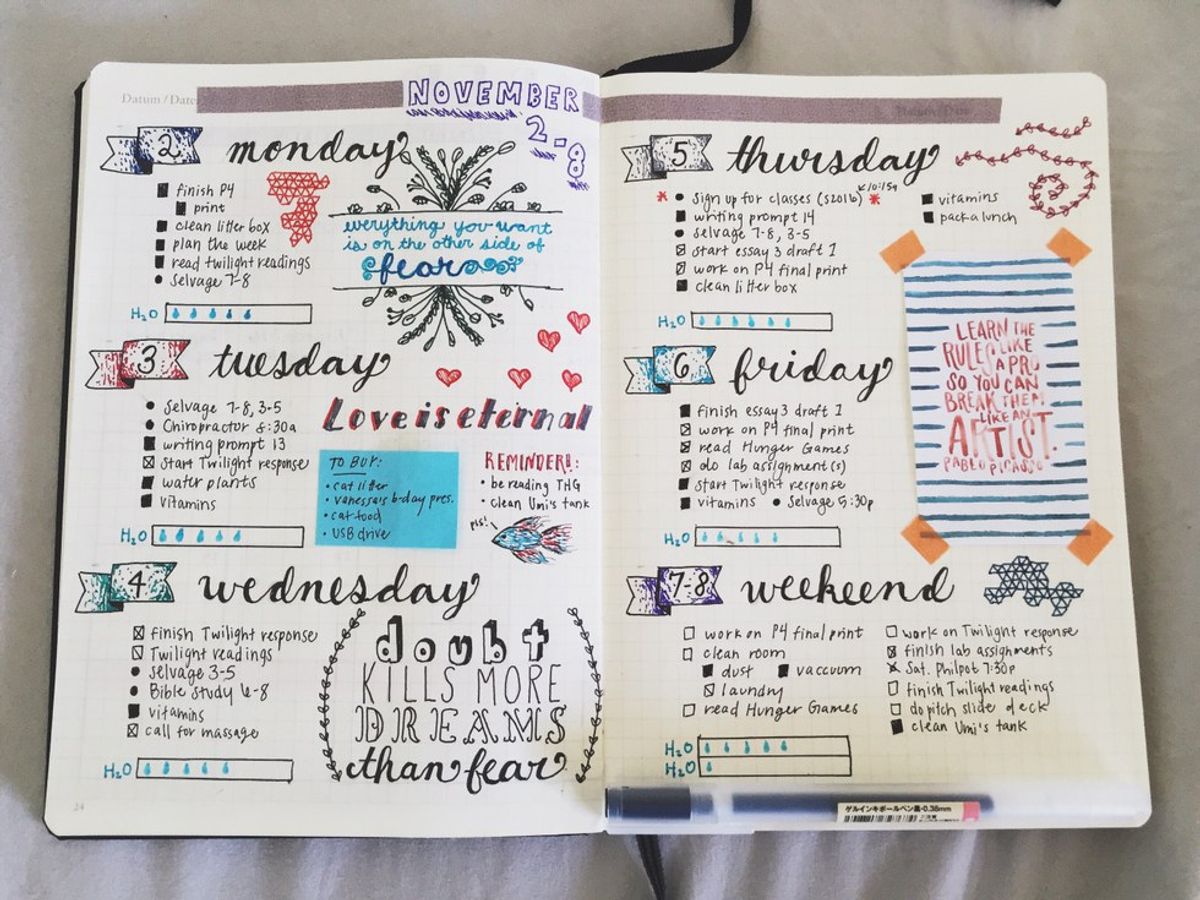 Datum / Date:
NOVEMBER
2-8
2 monday
finish P4
print
clean litter box
plan the week
read twilight readings
Selvage 7-8
H2O
everything you want
is on the other side of
fear
3 tuesday
Selvage 7-8, 3-5
Chiropractor 8:30a
writing prompt 13
start Twilight response
water plants
vitamins
H2O
Love is eternal
TO BUY:
• cat litter
• vanessa's b-day pres.
• cat food
• USB drive
REMINDER!:
• be reading THG
• clean Umi's tank
pls!
4 wednesday
finish Twilight response
Twilight readings
Selvage 3-5
Bible Study 6-8
vitamins
call for massage
H2O
doubt
KILLS MORE
DREAMS
than fear
24
5 thursday
10:15a
* Sign up for classes (S2016) *
writing prompt 14
selvage 7-8, 3-5
start essay 3 draft 1
work on P4 final print
clean litter box
vitamins
pack a lunch
H2O
6 friday
finish essay 3 draft 1
work on P4 final print
read Hunger Games
do lab assignment(s)
start Twilight response
vitamins • Selvage 5:30p
H2O
LEARN THE
RULES LIKE
A PRO
SO YOU CAN
BREAK THEM
LIKE AN
ARTIST.
PABLO PICASSO
7-8 weekend
work on P4 final print
clean room
dust vaccuum
laundry
read Hunger Games
work on Twilight response
finish lab assignments
Sat. Philpot 7:30p
finish Twilight readings
do pitch slide deck
clean Umi's tank
H2O
H2O
ゲルインキボールペン黒・0.38mm